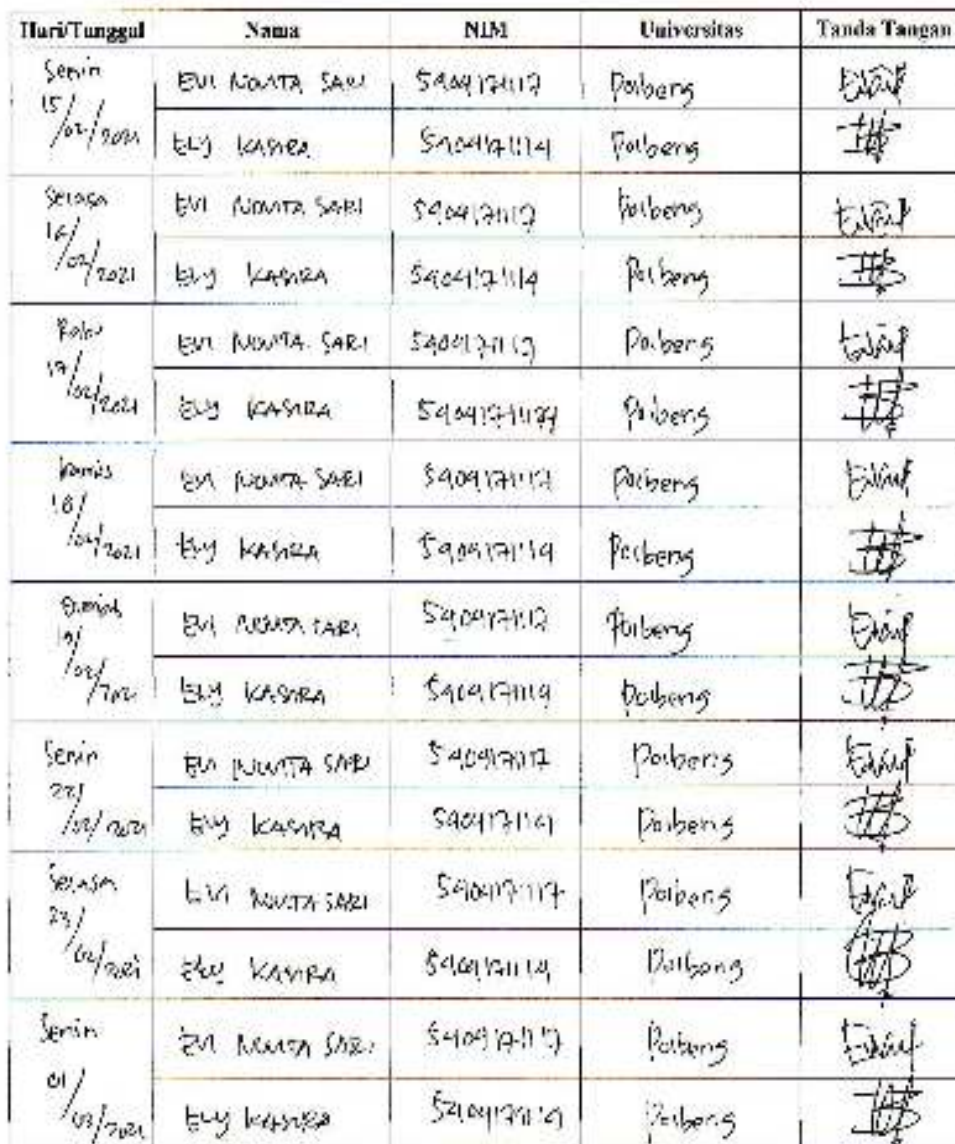 Hari/Tanggal Nama NIM Universitas Tanda Tangan
Senin 15/02/2021 EVI NOVITA SARI 5404171117 Polbeng
ELY KASIRA 5404171114 Polbeng
Selasa 16/02/2021 EVI NOVITA SARI 5404171117 Polbeng
ELY KASIRA 5404171114 Polbeng
Rabu 17/02/2021 EVI NOVITA SARI 5404171117 Polbeng
ELY KASIRA Polbeng
Kamis 18/02/2021 EVI NOVITA SARI 5404171117 Polbeng
ELY KASIRA 5404171114 Polbeng
19/02/2021 EVI NOVITA SARI 5404171117 Polbeng
ELY KASIRA 5404171114 Polbeng
Senin 22/02/2021 EVI NOVITA SARI 5404171117 Polbeng
ELY KASIRA 5404171114 Polbeng
Selasa 23/02/2021 EVI NOVITA SARI 5404171117 Polbeng
ELY KASIRA 5404171114 Polbeng
Senin 01/03/2021 EVI NOVITA SARI 5404171117 Polbeng
ELY KASIRA 5404171114 Polbeng